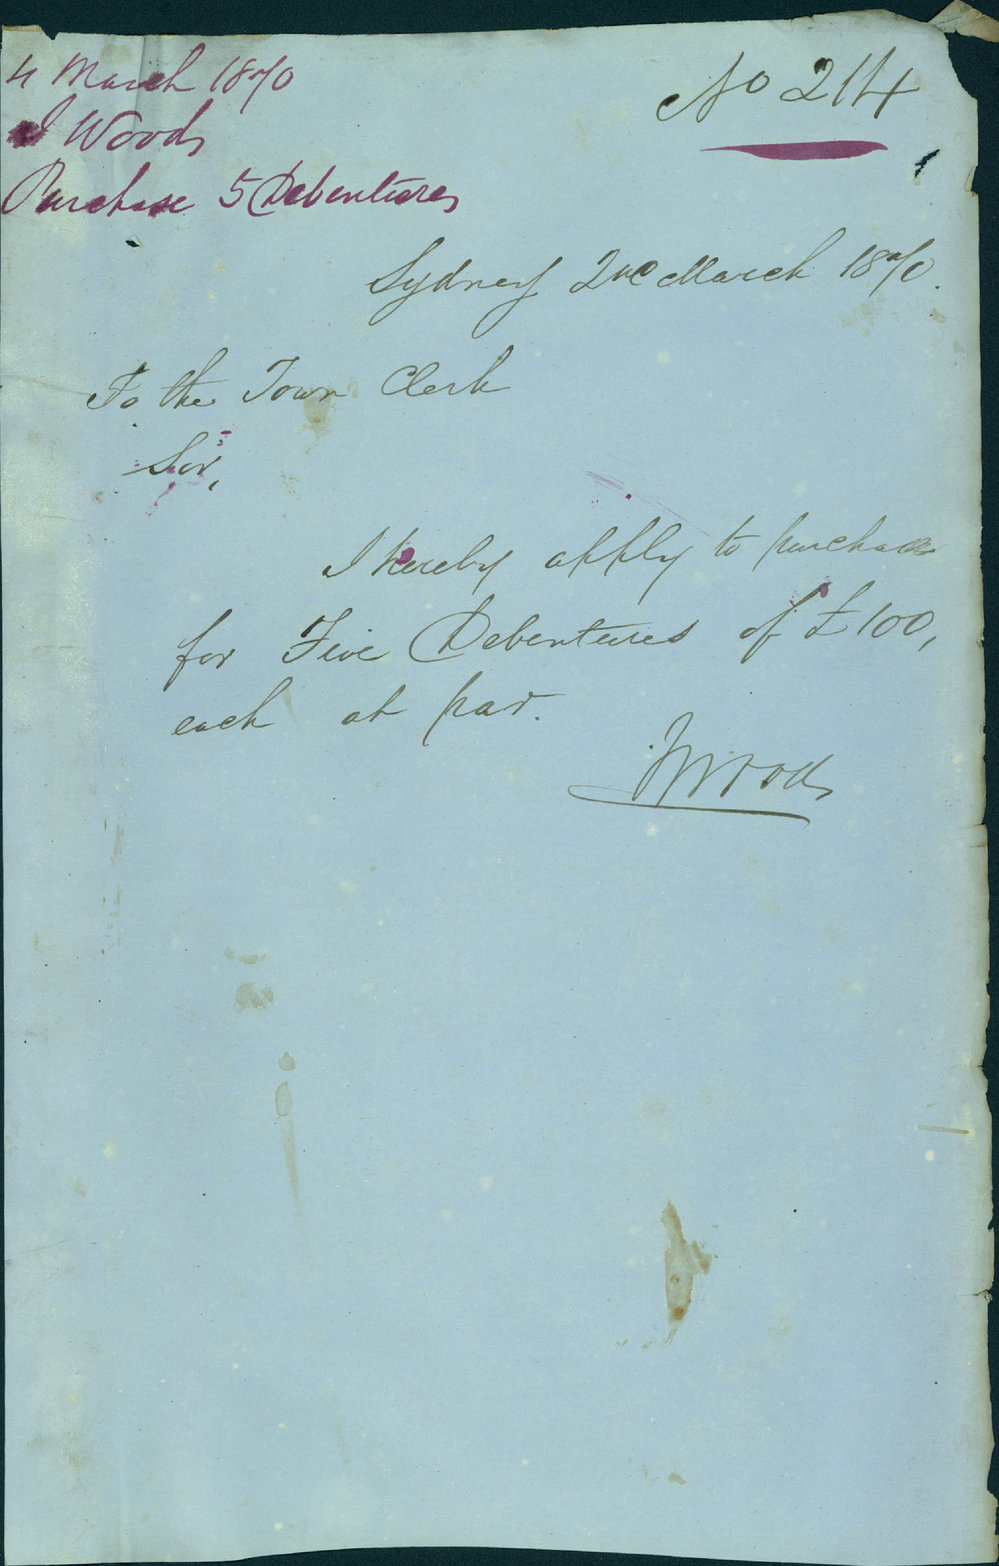 4 March 1870
J Woods
Purchase 5 Debentures
No 214
Sydney 2nd March 1870.
To the Town Clerk
Sir,
I hereby apply to purchase
for Five Debentures of £100,
each at par.
J Woods